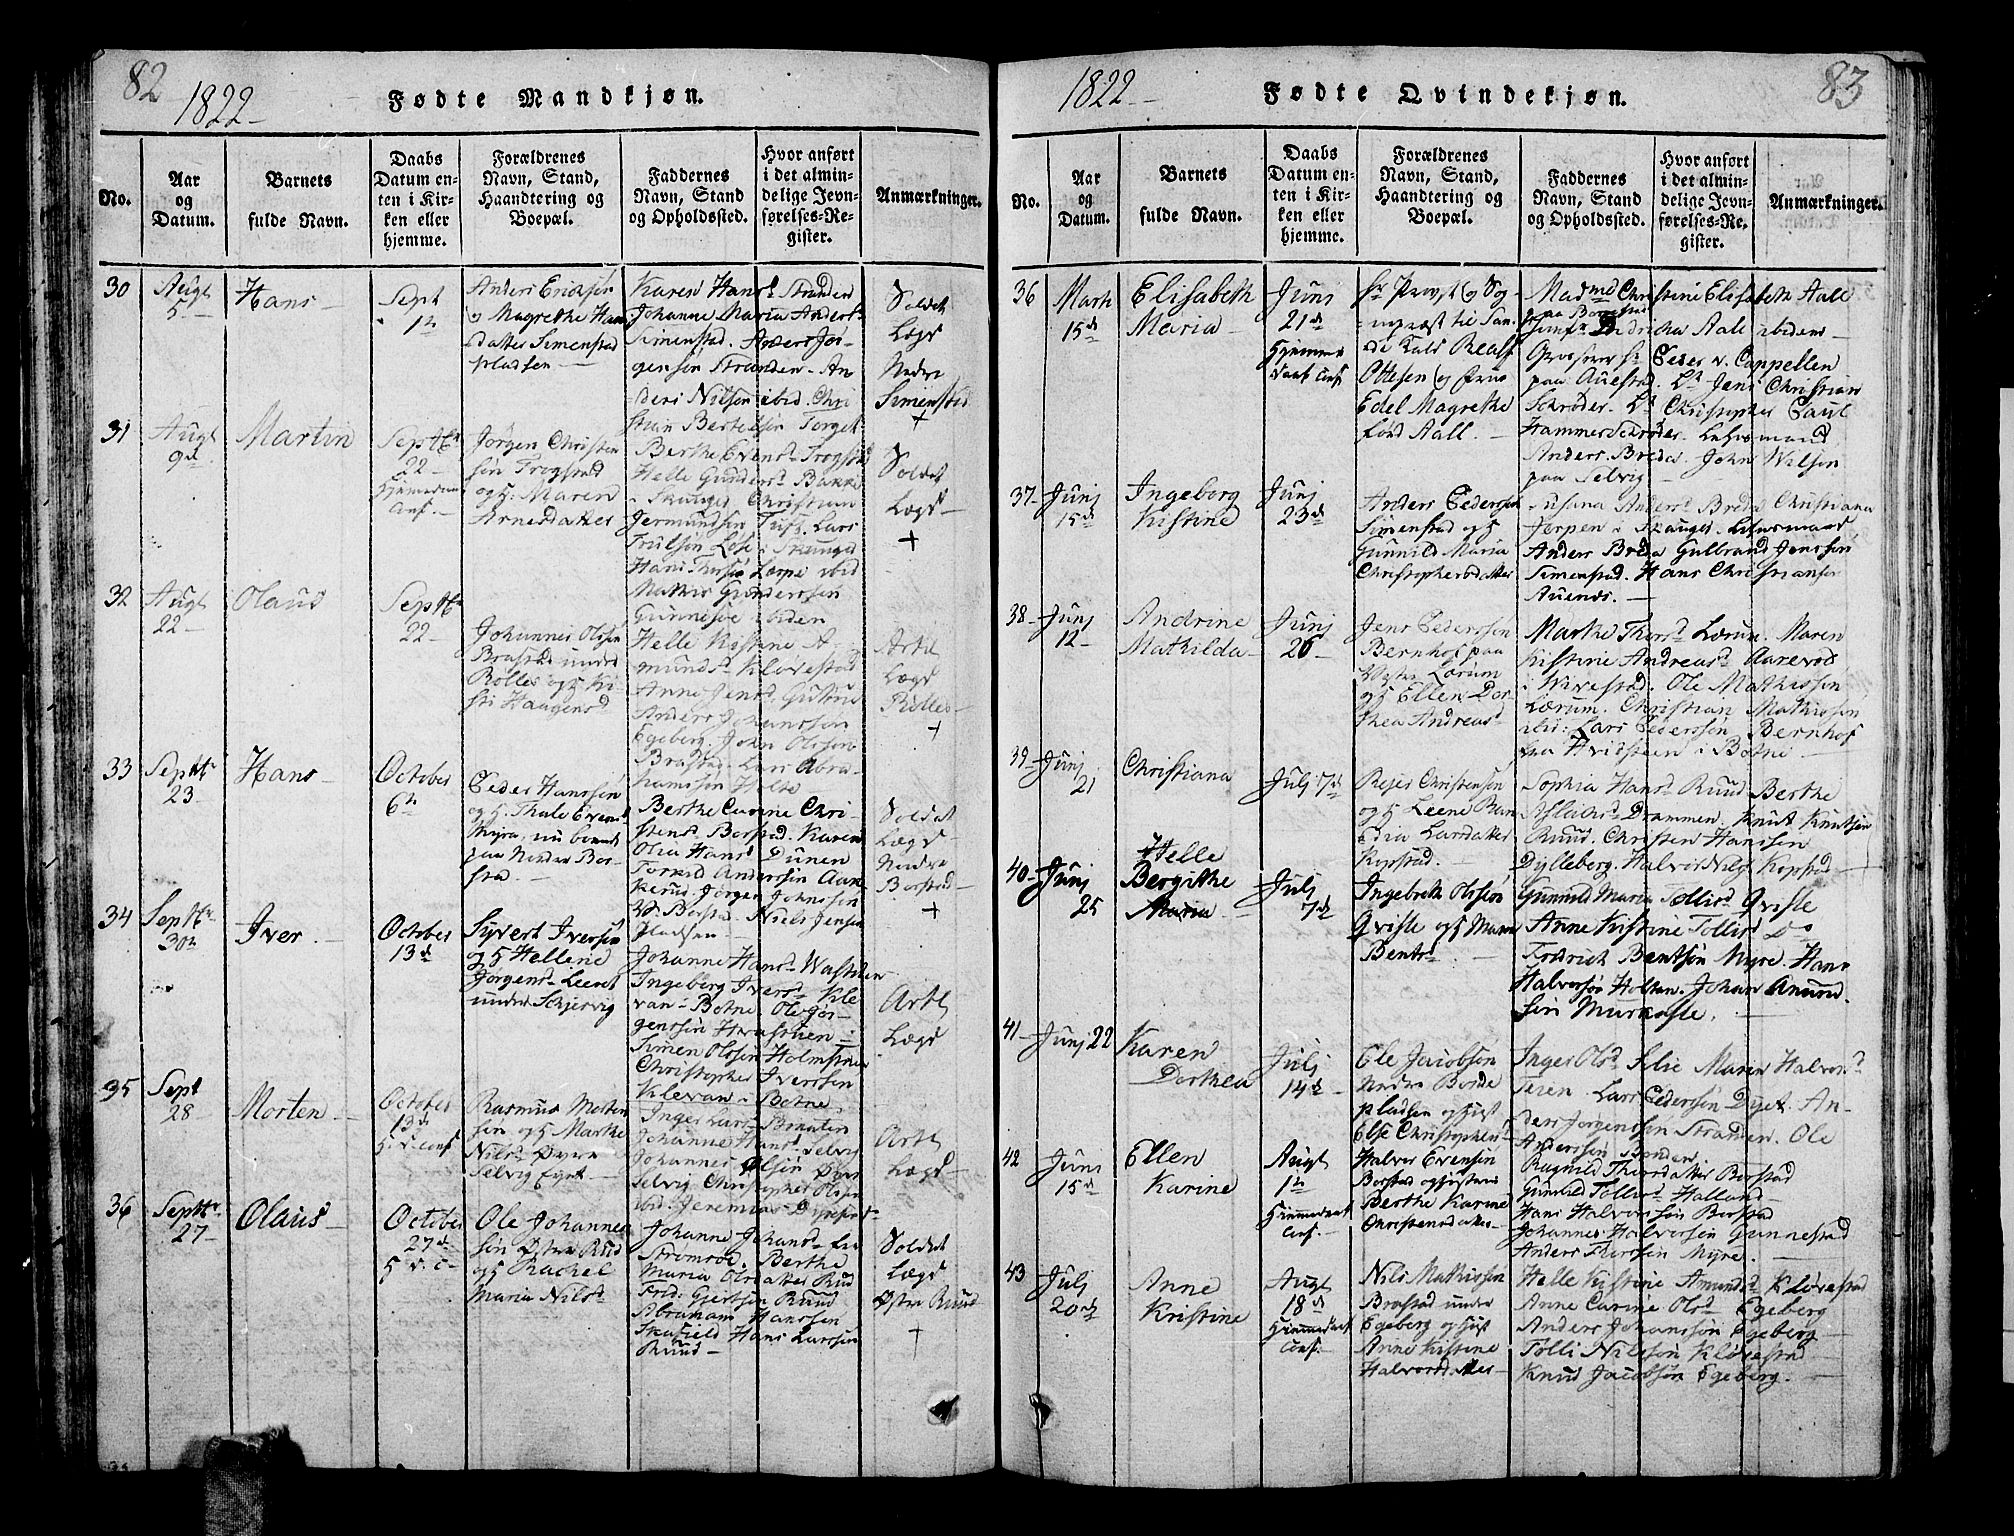 82
1822
Fødte Mandkjøn.
No.
Aar
og
Datum.
Barnets
fulde Navn.
Daabs
Datum en-
ten i Kir-
ken eller
hjemme.
Forældrenes
Navn, Stand,
Haandtering og
Boepæl.
Faddernes
Navn, Stand
og Opholdssted.
Hvor anført
i det almin-
delige Jevn-
førelses-Re-
gister.
Anmærkninger.
30
Augt
5
Hans
Sept
1te
Anders Ericksøn
og Magrethe Hans
datter Simenstad
pladsen
Karen Hansd Stranden
Johanne Maria Andersd
Simenstad. Anders Jør-
gensøn Stranden. An
ders Nilsøn ibid. Chri
stian Bertelsøn Torget
Soldet
Lægd
Nedre
Simenstad
+
31
Augt
9d
Martin
Septbr
22
Hjemmedøbt
conf.
Jørgen Christen
søn Frogstad
og H. Maren
Arnesdatter
Berthe Evensd Frogstad
Helle Gundersd Bakke
i Skauger Christian
Jermundsøn Tuft. Lars
Trulsøn
Hans ibid
Mathis Gunderssøn
Gunnesøe ibiden
Soldet
Lægd
+
32
Augt
22
Olaus
Septbr
22
Johannes Olsøn
Brastad under
Rolles og H. Ki-
sti Haagensd
Helle Kistine A-
mundsd Kløvestad
Anne Jensd
Anders Johanssøn
Egeberg. John Olssøn
Brastad. Lars Abra-
hamsøn
Artl
Lægd
Rolles
+
33
Septbr
23
Hans
October
6te
Peder Hanssøn
og H. Thale Evensd
Myra, nu boende
paa Nordre Bor-
stad
Berthe Carine Chri-
stensd Borstad. Karen
Olia Hansd Dunen
Torkild Anderssøn Aan
kerud. Jørgen Johnssøn
V. Borstad. Niels Jensen
Pladsen
Soldet
Lægd
Nedre
Borstad
+
34
Septbr
30te
Iver
October
13d
Syvert Iversøn
og H. Hellene
Jørgensd Leeret
under Schjervig
Johanne Hansd
Ingeberg Iversd Kle
van Botne Ole Jør-
genssøn
Simen Olssøn Holmstuen
Christopher Iverssen
Klevan Botne
Artl
Lægd
35
Sept
28
Morten
October
13de
H. D. conf
Rasmus Morten
søn og H. Marthe
Nilsd Øvre
Selvig Eyet
Inger Larsd
Johanne Hansd Selvig
Johannes Olsøn Øvre
Selvig Christopher Olsen
ibid. Jeremias
Artl
Lægd
36
Septbr
27
Olaus
October
27d
H. D. C.
Ole Johannes
søn Østre Rud
og H. Rachel
Maria Nilsd
Johanne Johansd fra
Strømrød. Berthe
Maria Olsdatter Rud
Frid: Gjertsøn Ruud
Abraham Hanssen
Skafjeld Hans Larssøn
Ruud
Soldet
Lægd
Østre Ruud
+
1822
Fødte Qvindekjøn.
83
No.
Aar
og
Datum.
Barnets
fulde Navn.
Daabs
Datum en-
ten i Kir-
ken eller
hjemme.
Forældrenes
Navn, Stand,
Haandtering og
Boepæl.
Faddernes
Navn, Stand
og Opholdssted.
Hvor anført
i det almin-
delige Jevn-
førelses-Re-
gister.
Anmærkninger.
36
Marts
15de
Elisabeth
Maria
Junj
21de
Hjemme
døbt conf
Hr Provst og Sog-
nepræst til San-
de Kals Reals
Ottesen og Frue
Edel Magrethe
født Aall.
Madme Christine Elisabeth Aall
paa Borgestad
Jomfr Didricha Aall ibidem
Grosserer Hr Peder v. Cappellen
paa Auestad. Lt Jens Christian
Schrøder. Lt Christopher Paul
Hammer Schrøder. Lehnsmand
Anders Breda. John Wilson
paa Selvig
37
Junj
15de
Ingeborg
Kistine
Junj
23de
Anders Pederssøn
Simenstad og H
Gunnild Maria
Christophersdatter
Susana Andersd Breda Christiana
Jerpen i Skauger. Lehnsmand
Anders Breda Gulbrand Jenssøn
Simenstad. Hans Christiansen
Auenes.
38
Junj
12
Andrine
Mathilda
Junj
26
Jens Pederssøn
Bernhof paa
Vestre Lørum
og H Ellen Dor-
thea Andreasd
Marthe Thorsd Lærum. Maren
Kistine Andreasd Aarevod
i Nivestad. Ole Mathissen
Lærum. Christian Mathissøn
ibid: Lars Pederssøn Bernhof
paa Hvidsteen i Botne
39
Junj
21
Christiana
Julj 7de
Rejer Christensøn
og H Leene Man
Larsdatter
Kopstad.
Sophia Hansd Ruud Berthe
Aslachsd Drammen. Knut Knutsøn
Ruud. Christen Hanssen
Dylleberg. Halvor Nils Kopstad
40
Junj
25
Helle
Bergithe
Maria
Julj
7de
Ingebreth Olssøn
Qvisle og H Maren
Bentsd
Gunnild Maria Tollisd Qvisle
Anne Kistine Tollisd Do
Fredrich Bentsøn Myre. Hans
Halversøn Holtan. Johan Amund
søn Murkosle.
41
Junj 22
Karen
Dorthea
Julj
14de
Ole Jacobsøn
Nedre Borde
pladsen og Hust
Else Christophersd
Inger Olsd Selie Maren Halvorsd
Teien. Lars Pederssøn Dyet. An-
ders Jørgenssøn Stranden. Ole
Anderssøn
42
Junj
15de
Ellen
Karine
Augt
1te
Hjemmedøbt
Conf.
Halvor Evensøn
Borstad og Hustrue
Berthe Karine
Christensdatter
Ragnild Thorsdatter Borstad
Gunnild Tollersd Halland
Hans Halvorssøn Borstad
Johannes Halversøn Gunnestad
Anders Thorssøn Myre.
43
Julj
20de
Anne
Kristine
Augt
18de
Hjemmedøbt
Conf.
Nils Mathissøn
Brastad under
Egeberg og Hust
Anne Kistine
Halvorsdatter
Helle Kistine Amundsd Kløvestad
Anne Carine Olsd Egeberg
Anders Johanssøn Egeberg
Tolli Nilssøn Kløvestad
Knud Jacobsøn Egeberg.